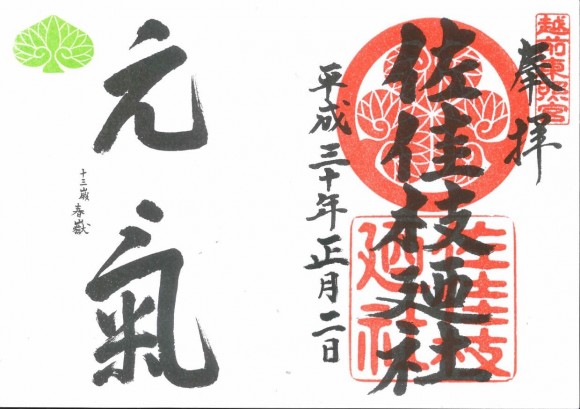 越前東照宮
奉拝
佐佳枝廼社
佐佳枝
廼社
平成三十年正月二日
元氣
十三歳 春嶽